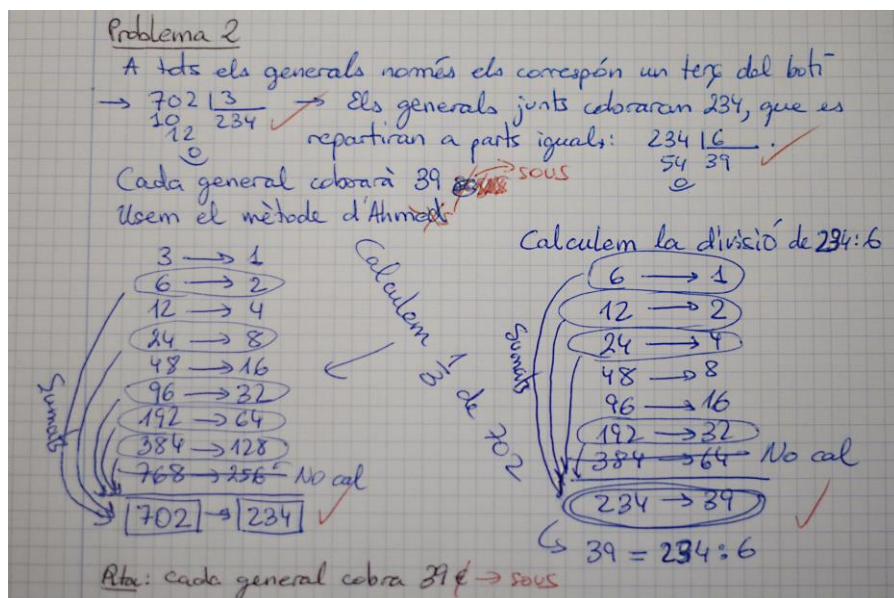 Problema 2
A tots els generals només els correspón un terç del botí
→ 702 | 3 → Els generals junts cobraran 234, que es
10 234
12
0
repartiran a parts iguals: 234 | 6 .
54 39
0
Cada general cobrarà 39 → sous
Usem el mètode d'Ahmed
3 → 1
6 → 2
12 → 4
24 → 8
48 → 16
96 → 32
192 → 64
384 → 128
768 → 256 No cal
702 → 234
Sumats
Calculem 1/3 de 702
Calculem la divisió de 234:6
6 → 1
12 → 2
24 → 4
48 → 8
96 → 16
192 → 32
384 → 64 No cal
234 → 39
Sumats
39 = 234 : 6
Rta: Cada general cobra 39 € → sous